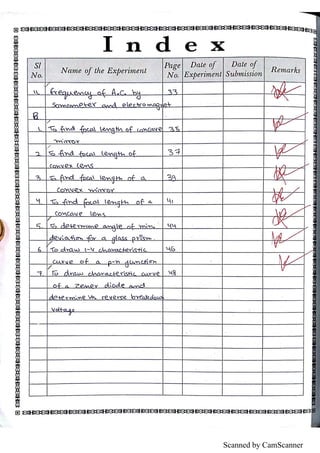 Index
Sl No. Name of the Experiment Page No. Date of Experiment Date of Submission Remarks
11. frequency of A.C. by 33
Sonometer and electromagnet
B.
1. To find focal length of concave 35
mirror
2. To find focal length of 37
convex lens
3. To find focal length of a 39
convex mirror
4. To find focal length of a 41
Concave lens
5. To determine angle of min. 44
deviation for a glass prism
6. To draw I-V characteristic 46
curve of a p-n junction
7. To draw characteristic curve 48
of a zener diode and
determine its reverse breakdown
voltage
Scanned by CamScanner